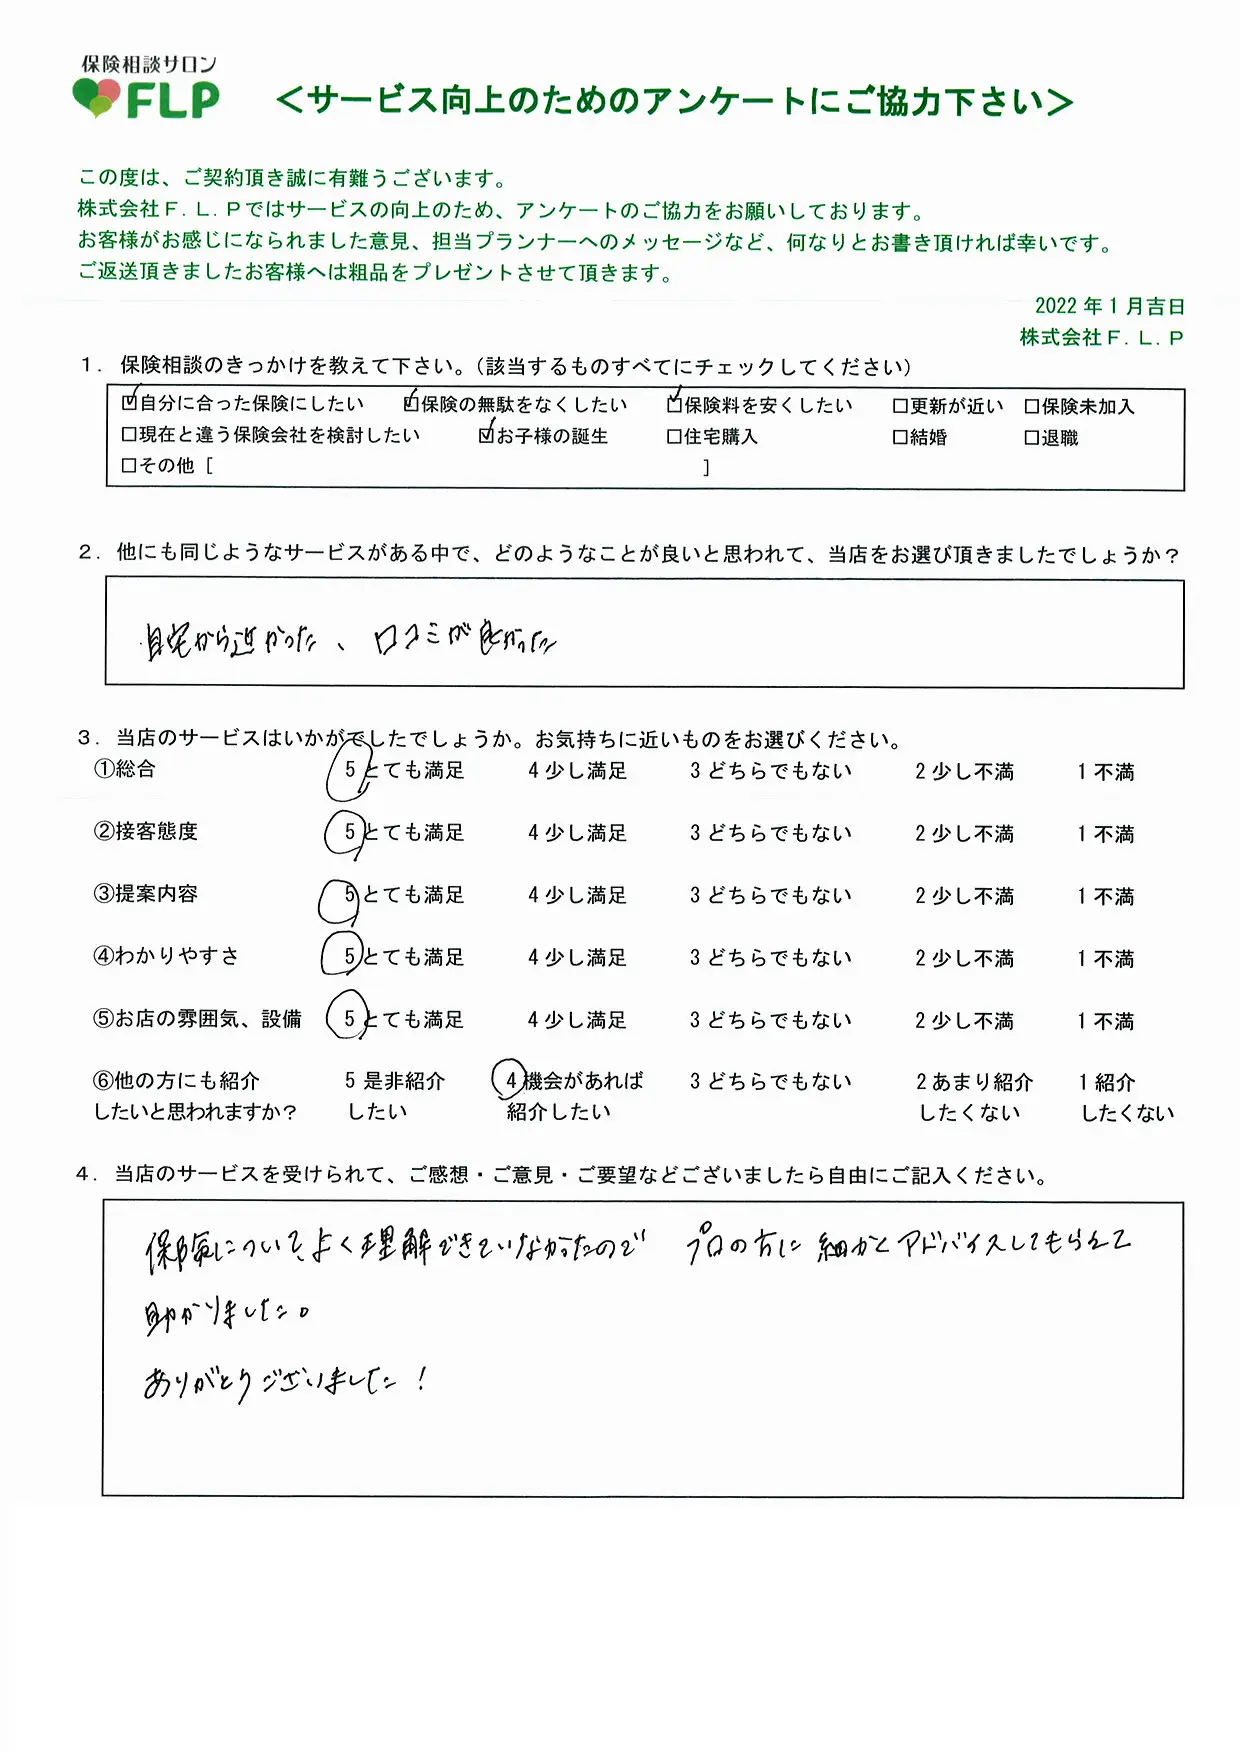 保険相談サロン
FLP
＜サービス向上のためのアンケートにご協力下さい＞
この度は、ご契約頂き誠に有難うございます。
株式会社Ｆ．Ｌ．Ｐではサービスの向上のため、アンケートのご協力をお願いしております。
お客様がお感じになられました意見、担当プランナーへのメッセージなど、何なりとお書き頂ければ幸いです。
ご返送頂きましたお客様へは粗品をプレゼントさせて頂きます。
2022年1月吉日
株式会社Ｆ．Ｌ．Ｐ
１．保険相談のきっかけを教えて下さい。（該当するものすべてにチェックしてください）
☑自分に合った保険にしたい ☑保険の無駄をなくしたい ☑保険料を安くしたい □更新が近い □保険未加入
□現在と違う保険会社を検討したい ☑お子様の誕生 □住宅購入 □結婚 □退職
□その他［ ］
２．他にも同じようなサービスがある中で、どのようなことが良いと思われて、当店をお選び頂きましたでしょうか？
自宅から近かった、口コミが良かった
３．当店のサービスはいかがでしたでしょうか。お気持ちに近いものをお選びください。
①総合 5とても満足 4少し満足 3どちらでもない 2少し不満 1不満
②接客態度 5とても満足 4少し満足 3どちらでもない 2少し不満 1不満
③提案内容 5とても満足 4少し満足 3どちらでもない 2少し不満 1不満
④わかりやすさ 5とても満足 4少し満足 3どちらでもない 2少し不満 1不満
⑤お店の雰囲気、設備 5とても満足 4少し満足 3どちらでもない 2少し不満 1不満
⑥他の方にも紹介 5是非紹介 4機会があれば 3どちらでもない 2あまり紹介 1紹介
したいと思われますか？ したい 紹介したい したくない したくない
４．当店のサービスを受けられて、ご感想・ご意見・ご要望などございましたら自由にご記入ください。
保険について、よく理解できていなかったので プロの方に細かくアドバイスしてもらえて
助かりました。
ありがとうございました！